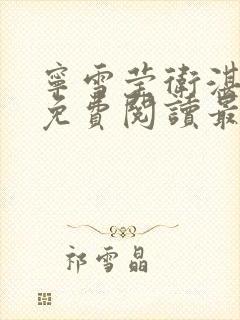 寧雪莹衛湛
免費閱讀最
祁雪晶